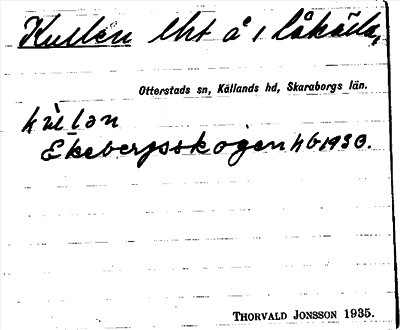 Kullen lht å 1 Låkälla,
Otterstads sn, Kållands hd, Skaraborgs län.
Ekebergsskogen hb 1930.
THORVALD JONSSON 1935.